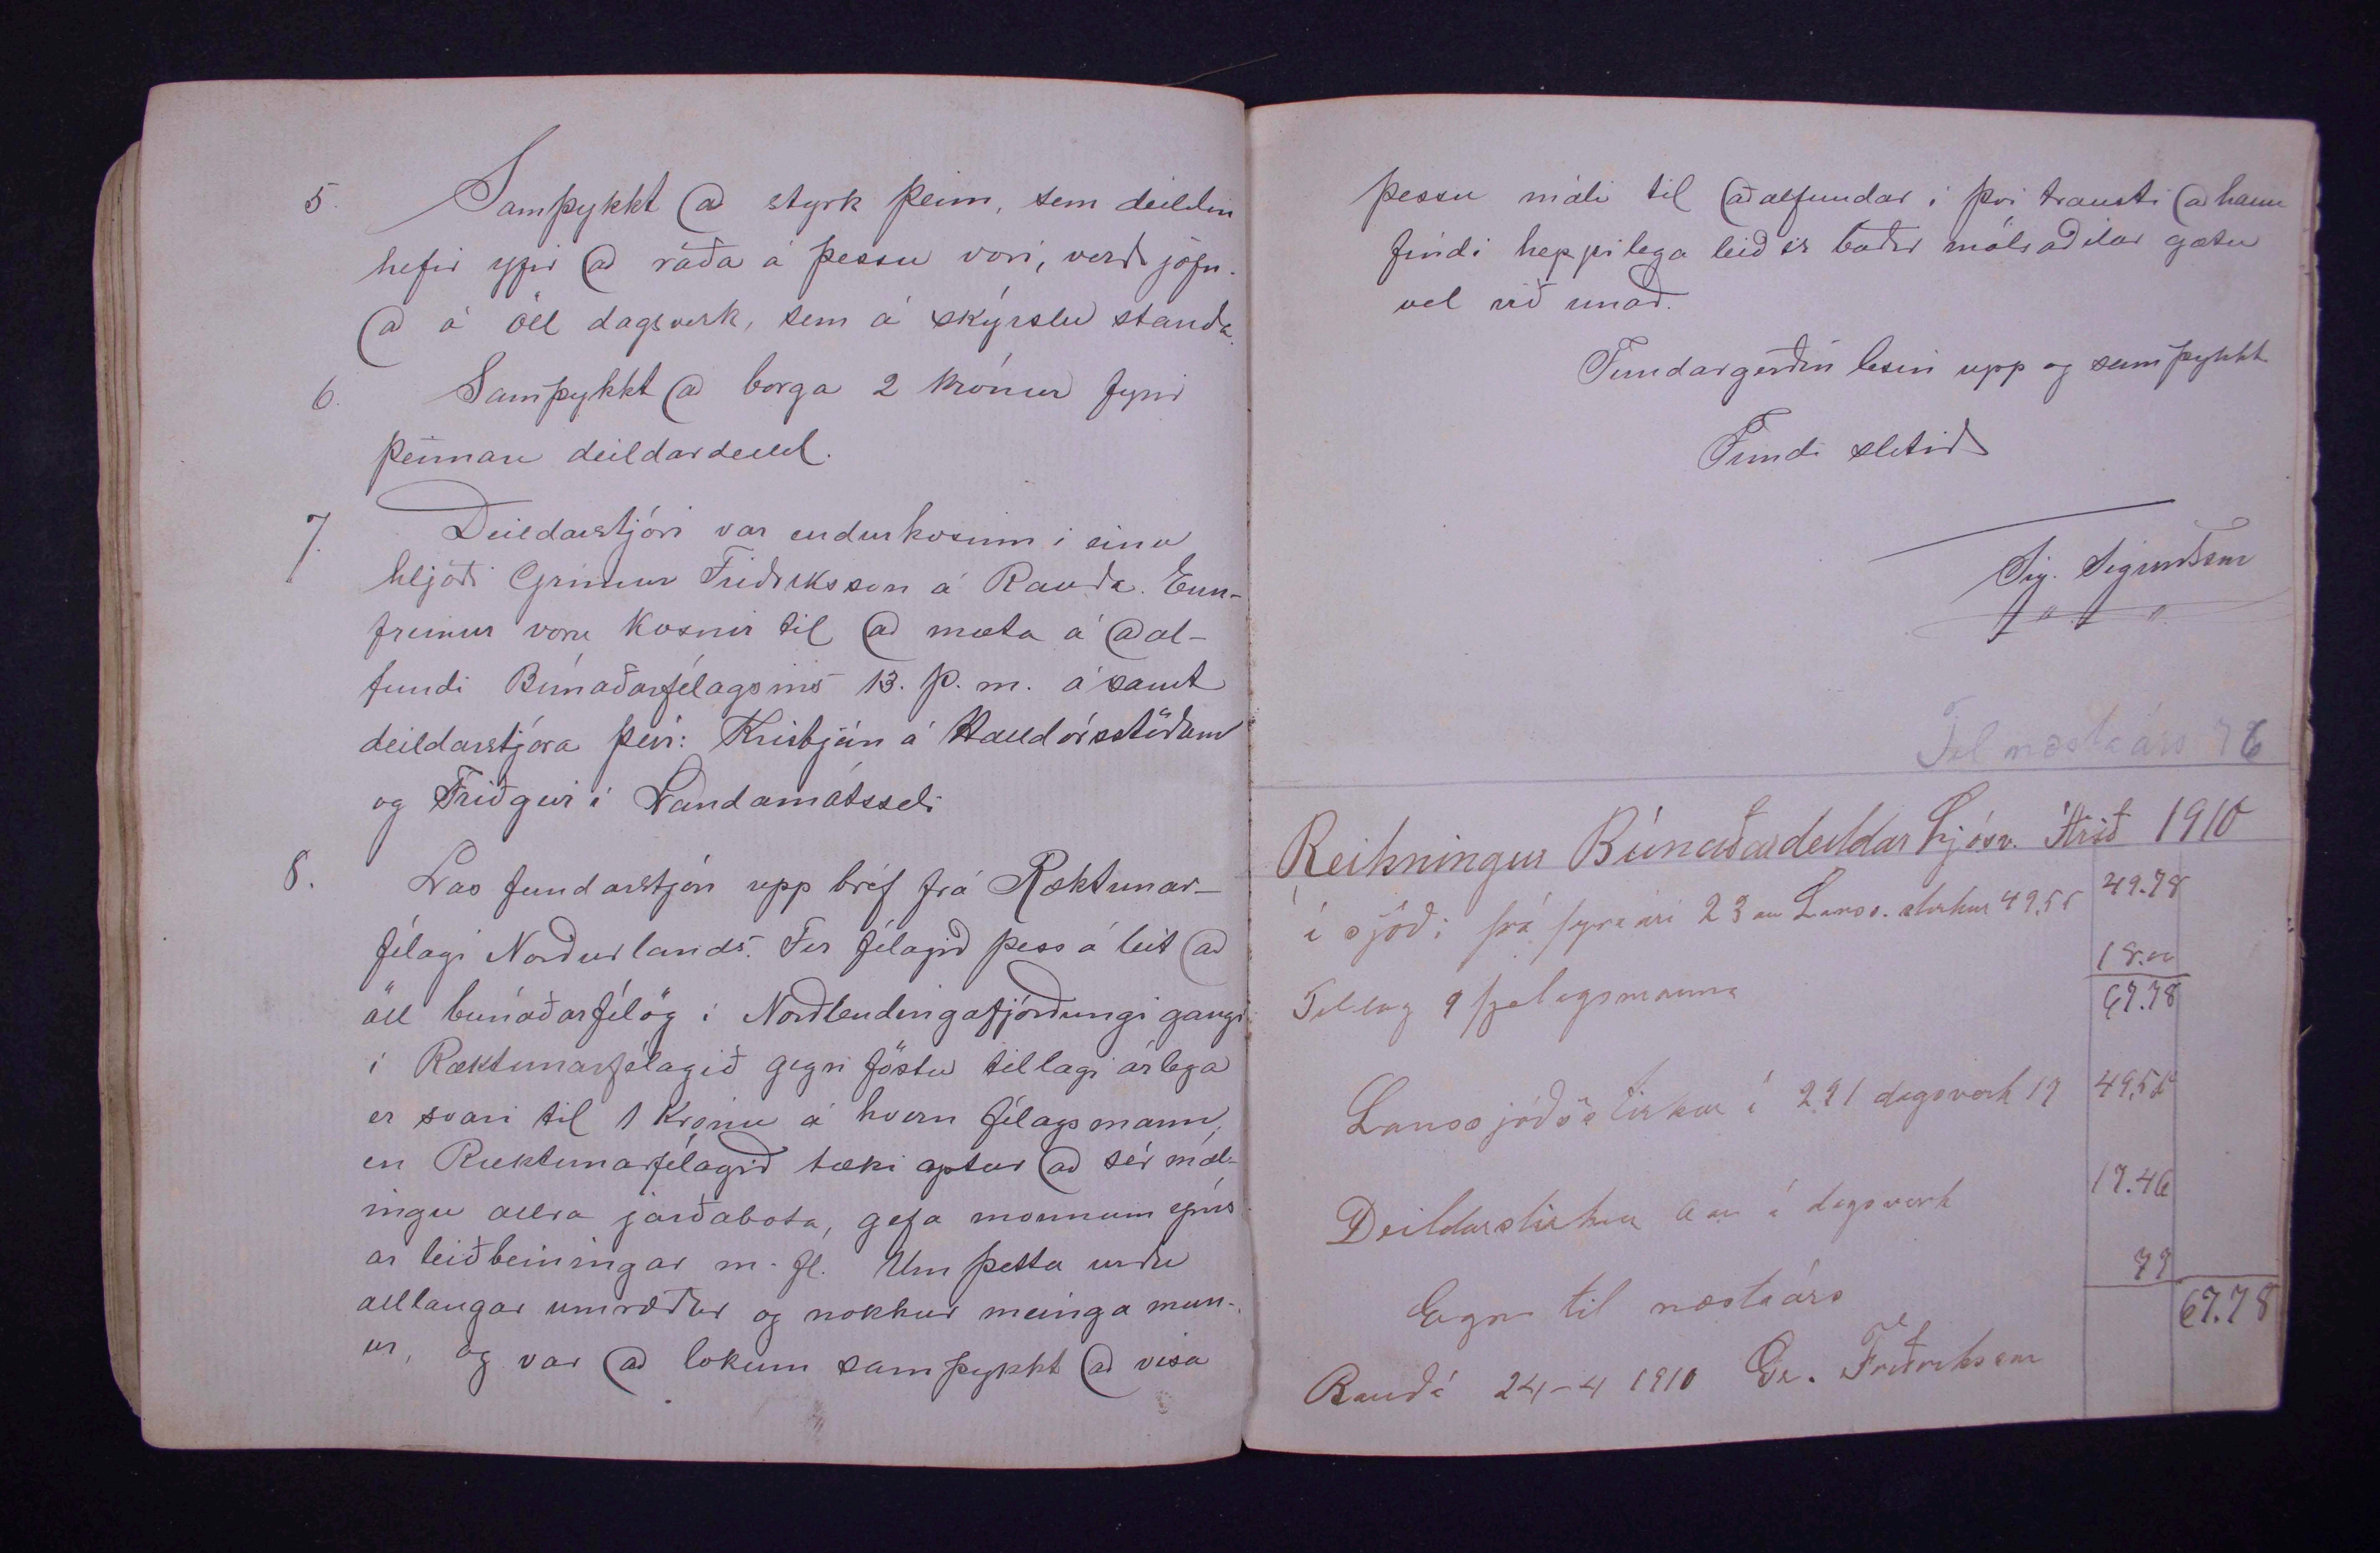 5. Samþykkt að styrk þeim, sem deildin
hefir yfir að ráða á þessu vori, verði jöfn-
að á öll dagsverk, sem á skýrslu standa.
6. Samþykkt að borga 2 krónur fyrir
þennan deildarfund.
7. Deildarstjóri var endurkosinn í einu
hljóði Grímur Friðriksson á Rauðá. Enn-
fremur voru kosnir til að mæta á aðal-
fundi Búnaðarfélagsins 13. þ. m. ásamt
deildarstjóra þeir: Kristján á Halldórsstöðum
og Friðgeir í Landamótsseli
8. Las fundarstjóri upp bréf frá Ræktunar-
félagi Norðurlands. Fer félagið þess á leit að
öll búnaðarfélög í Norðlendingafjórðungi gangi
í Ræktunarfélagið gegn föstu tillagi árlega
er svari til 1 krónu á hvern félagsmann,
en Ræktunarfélagið tæki aptur að sér mæl-
ingu allra jarðabóta, gefa mönnum ýms-
ar leiðbeiningar m. fl. Um þetta urðu
alllangar umræður og nokkur meininga mun-
ur, og var að lokum samþykkt að vísa
þessu máli til aðalfundar í því trausti að hann
findi heppilega leið er báðir málsaðilar gætu
vel við unað.
Fundargerðin lesin upp og samþykkt
Fundi slitið
Sig. Sigurðsson
Til næsta árs 76
Reikningur Búnaðardeildar Ljósv. Árið 1910
í sjóði frá fyra ári 23 au Lanss. stirkur 49,55 49.78
Tillag 9 fjelagsmanna 18.00
67.78
Lanssjóðsstirkur í 291 dagsverk 17 49,55
Deildarstirkur 6 au í dagsverk 17.46
Eign til næsta árs 77
67.78
Rauðá 24-4 1910 Gr. Friðriksson